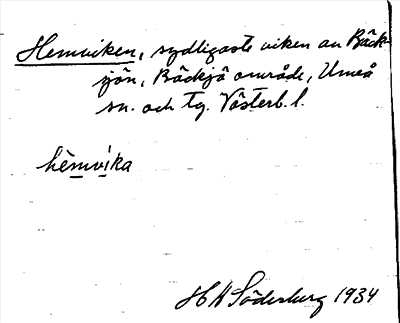 Hemviken, sydligaste viken av Bäck-
sjön, Bäcksjö område, Umeå
sn. och tg. Västerb. l.
hèmvika
H W Söderberg 1934